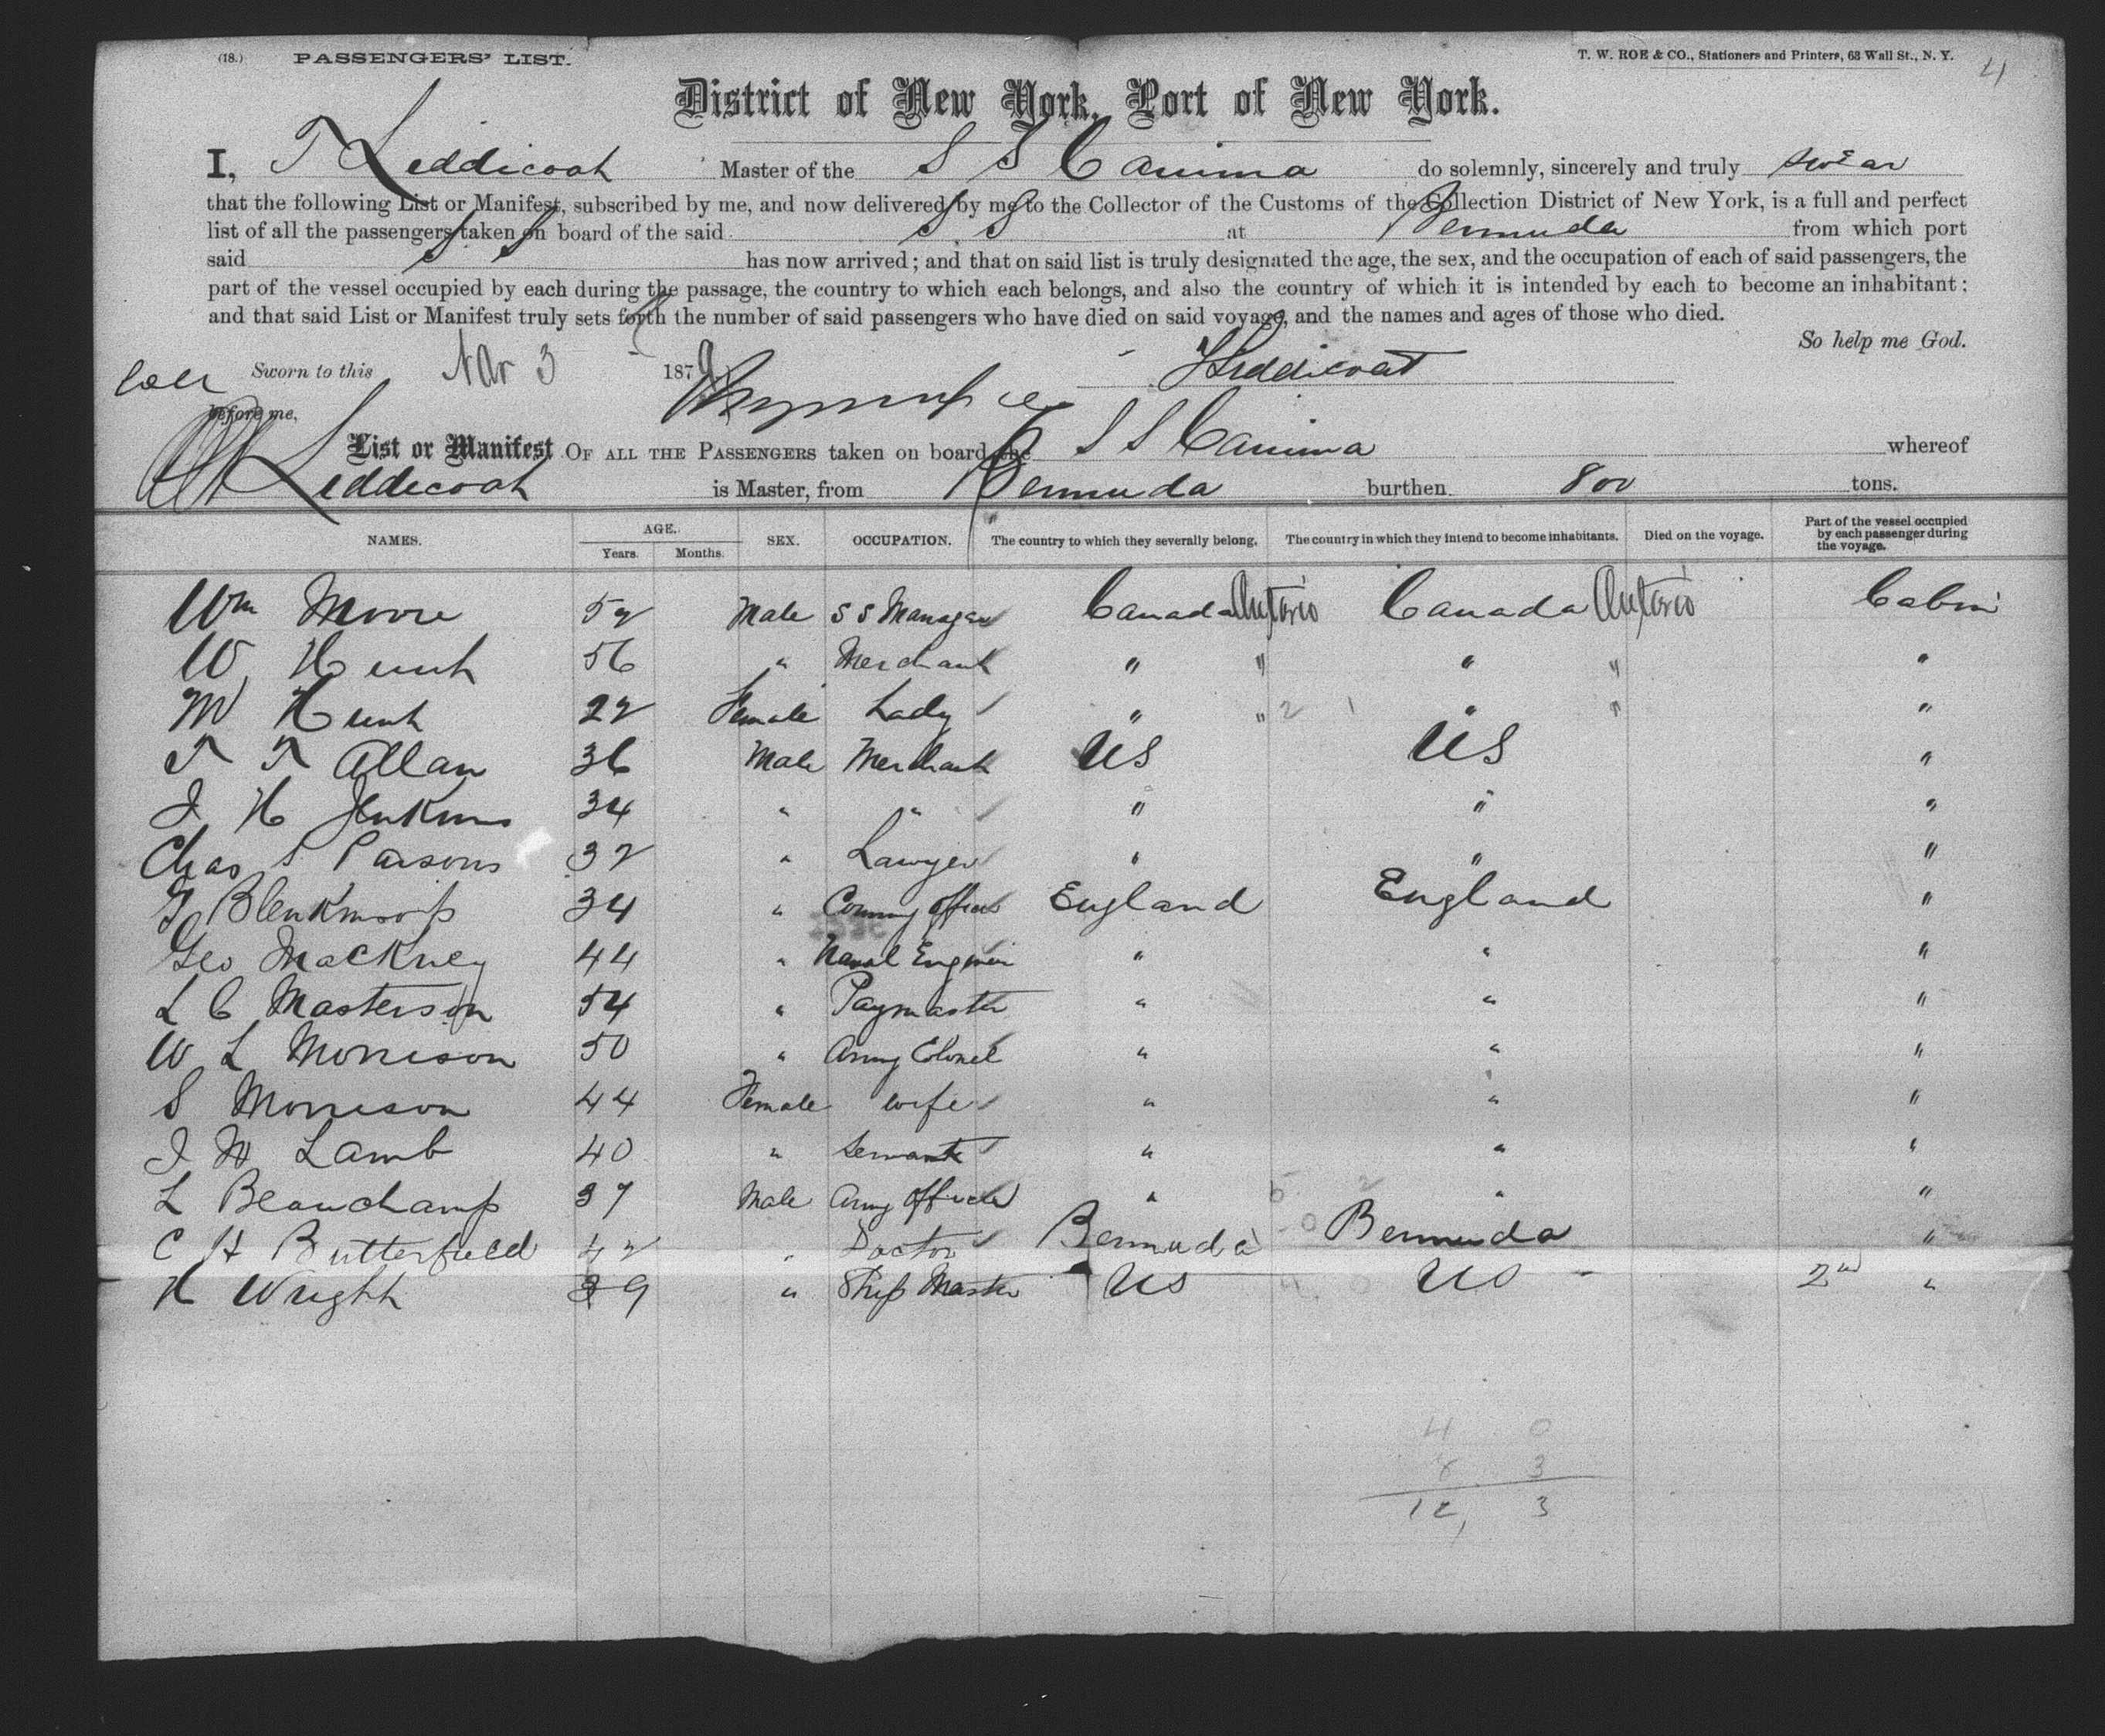 (18.) PASSENGERS' LIST. T. W. ROE & CO., Stationers and Printers, 63 Wall St., N. Y. 4
District of New York, Port of New York.
I, T Liddicoat Master of the S S Canima do solemnly, sincerely and truly swear
that the following List or Manifest, subscribed by me, and now delivered by me to the Collector of the Customs of the Collection District of New York, is a full and perfect
list of all the passengers taken on board of the said S S at Bermuda from which port
said S S has now arrived; and that on said list is truly designated the age, the sex, and the occupation of each of said passengers, the
part of the vessel occupied by each during the passage, the country to which each belongs, and also the country of which it is intended by each to become an inhabitant;
and that said List or Manifest truly sets forth the number of said passengers who have died on said voyage, and the names and ages of those who died.
So help me God.
Sworn to this Mar 3 1879 T Liddicoat
before me,
List or Manifest OF ALL THE PASSENGERS taken on board the S S Canima whereof
Liddicoat is Master, from Bermuda burthen 800 tons.
NAMES. AGE. Years. Months. SEX. OCCUPATION. The country to which they severally belong. The country in which they intend to become inhabitants. Died on the voyage. Part of the vessel occupied by each passenger during the voyage.
Wm Moore 52 Male S S Manager Canada Ontario Canada Ontario Cabin
W Hunt 56 " Merchant " " " " "
M Hunt 22 Female Lady " " " " "
T T Allan 36 Male Merchant US US "
J H Jenkins 34 " " " " "
Chas S Parsons 32 " Lawyer " " "
Blenkinsop 34 " Commy Officer England England "
Geo Mackney 44 " Naval Engineer " " "
L C Masterson 54 " Paymaster " " "
W L Morrison 50 " Army Colonel " " "
S Morrison 44 Female wife " " "
J W Lamb 40 " Servant " " "
L Beauchamp 37 Male Army Officer " " "
C H Butterfield 42 " Doctor Bermuda Bermuda "
H Wright 39 " Ship Master US US 2nd "
4 0
8 3
12, 3